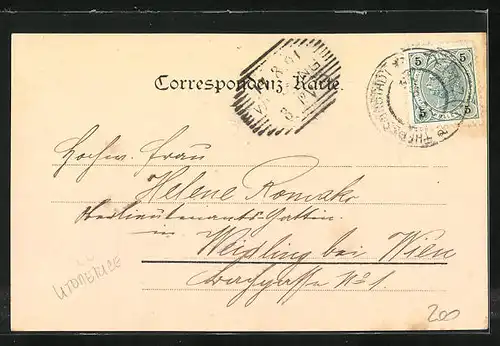 Correspondenz-Karte.
5 5
5 5
THERESIENSTADT
Hochw. Frau
Helene Romako
Oberlieutenants-Gattin.
in Weidling bei Wien
No 1.
LITOMĚŘICE
200